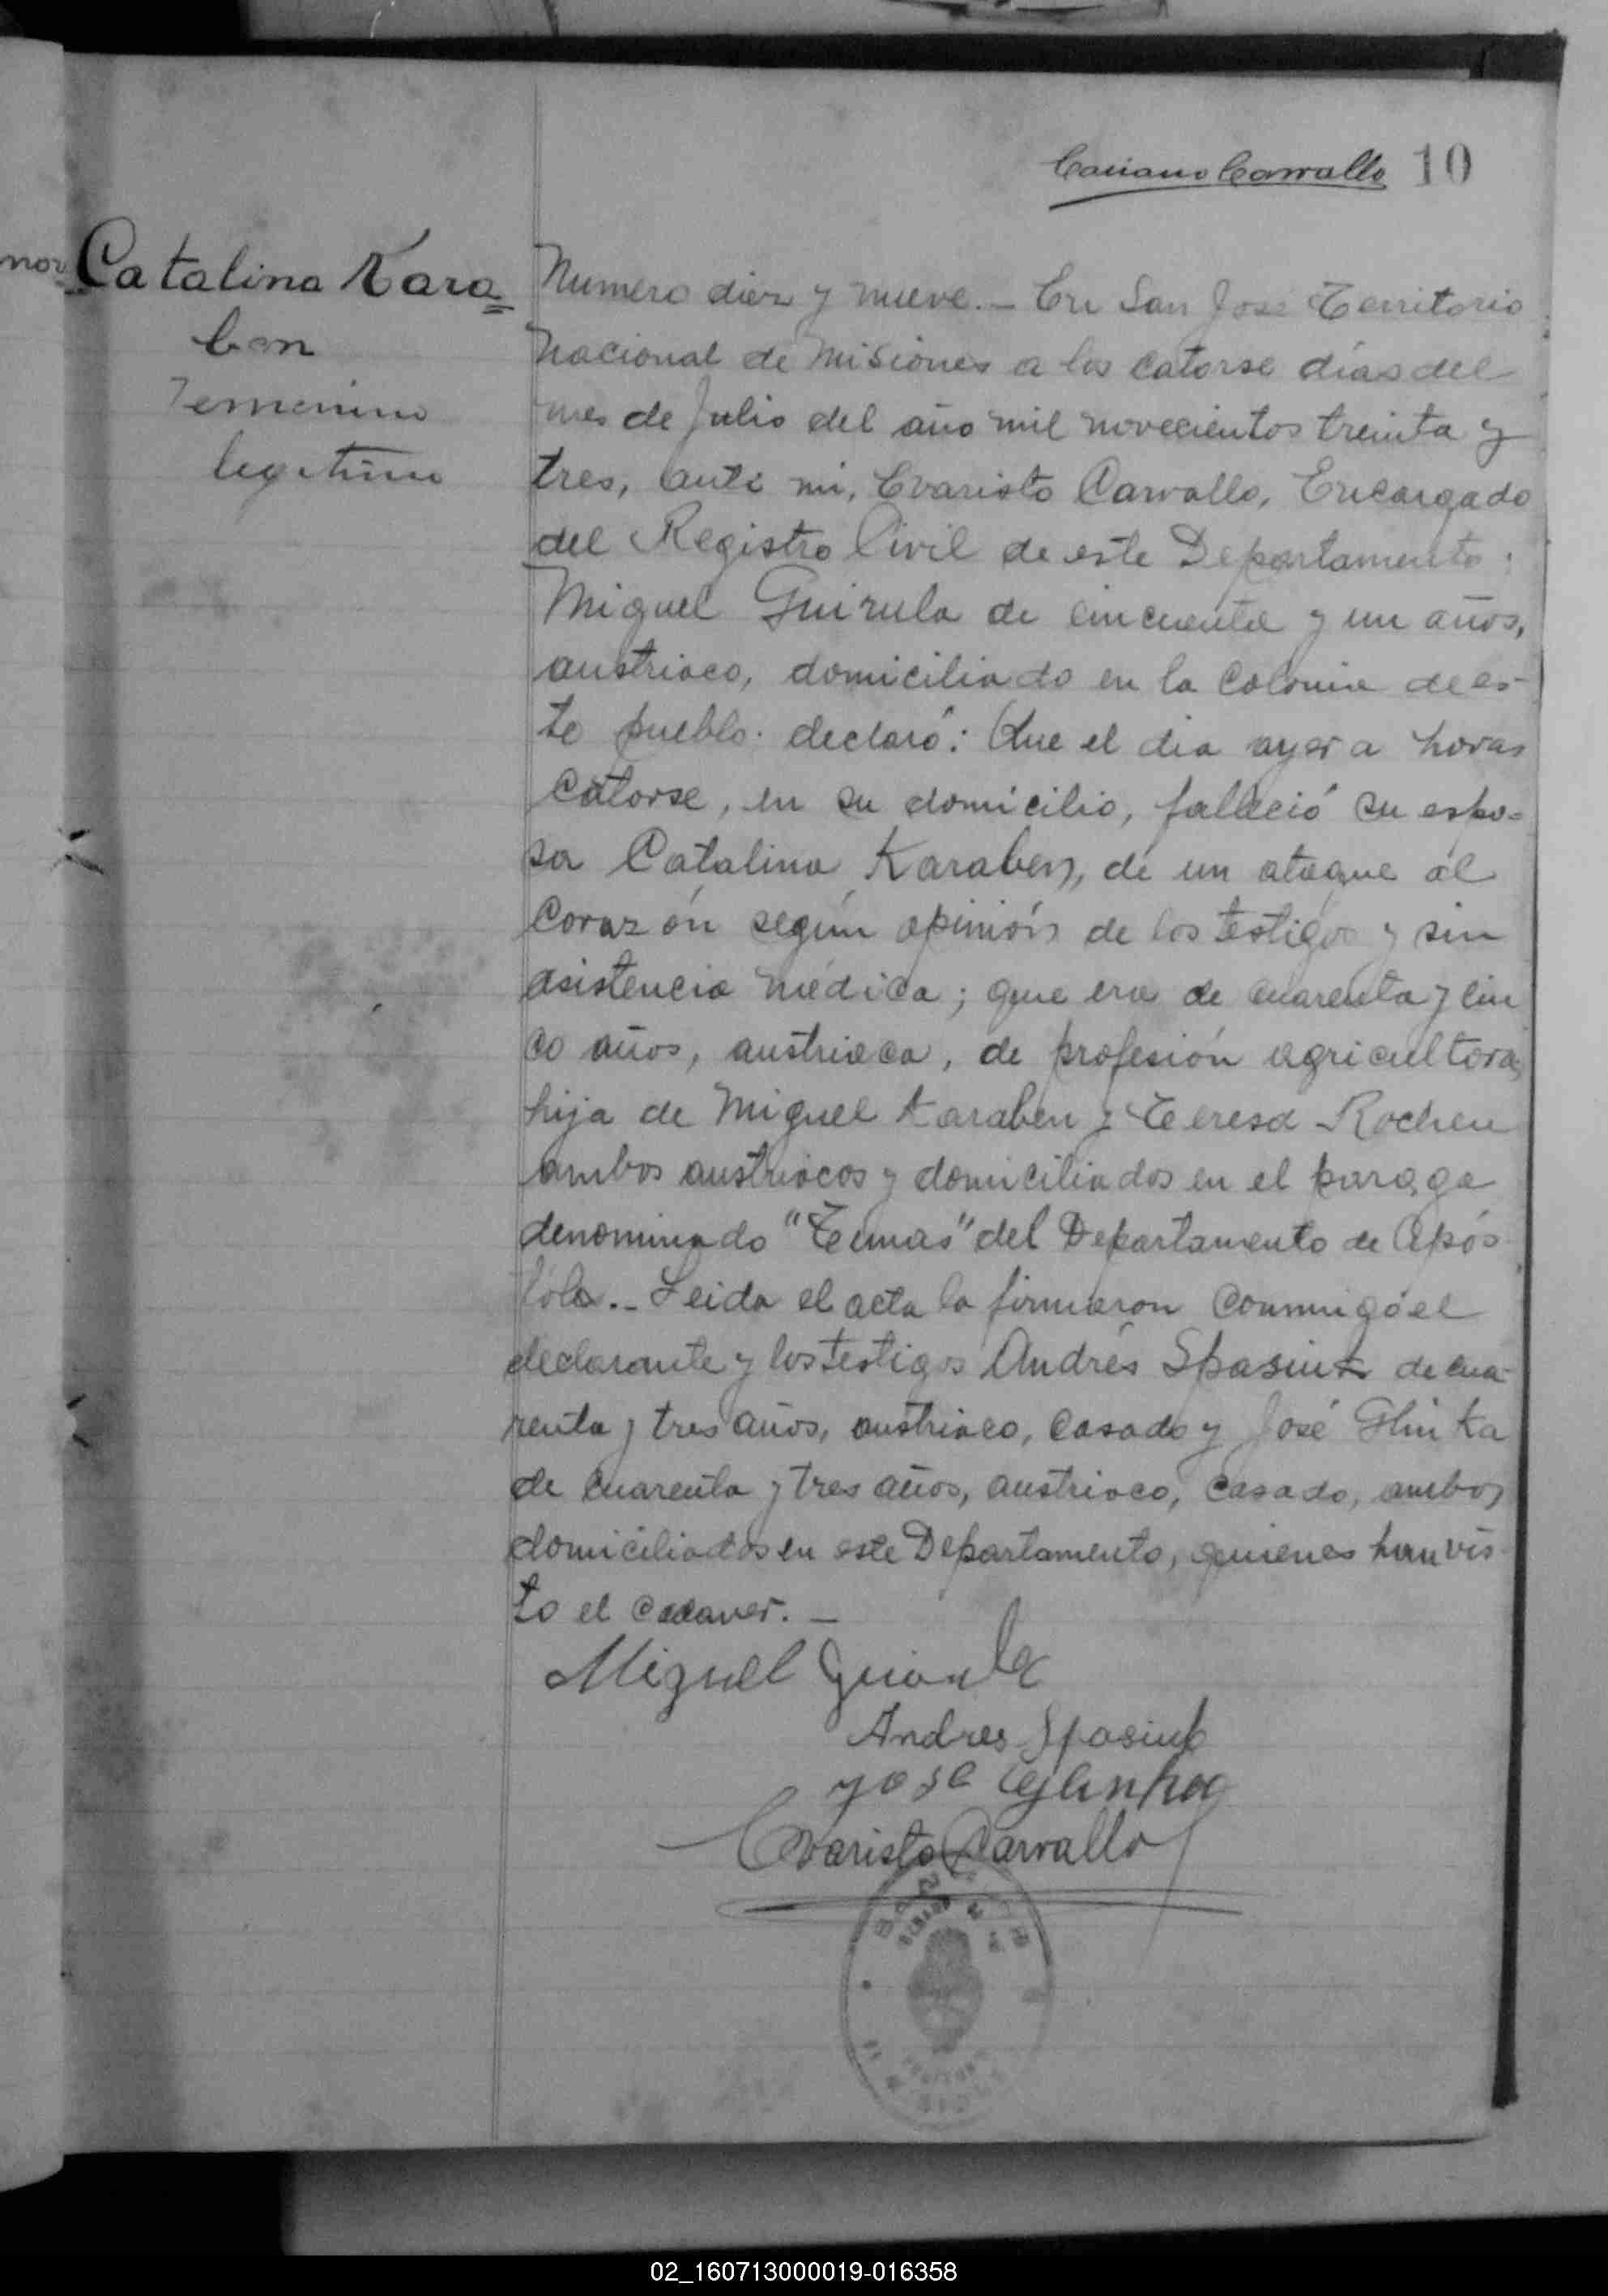 Casiano Carvallo 10
Catalina Kara
ben
Femenino
legitimo
Numero diez y nueve.- En San José Territorio
Nacional de Misiones a los catorse días del
mes de Julio del año mil novecientos treinta y
tres, ante mi, Evaristo Carvallo, Encargado
del Registro Civil de este Departamento:
Miguel Guirula de cincuenta y un años,
austriaco, domiciliado en la colonia de es-
te pueblo. declaró: Que el dia ayer a horas
catorse, en su domicilio, falleció su espo-
sa Catalina Karaben, de un ataque al
corazón según opinión de los testigos y sin
asistencia médica; que era de cuarenta y cin
co años, austriaca, de profesión agricultora,
hija de Miguel Karaben y Teresa Rochen
ambos austriacos y domiciliados en el parage
denominado "Tunas" del Departamento de Após
toles.- Leida el acta la firmaron conmigo el
declarante y los testigos Andrés Spasiuk de cua-
renta y tres años, austriaco, casado y José Glinka
de cuarenta y tres años, austriaco, casado, ambos
domiciliados en este Departamento, quienes han vis-
to el cadaver.-
Miguel Guirula
Andres Spasiuk
Jose Glinka
Evaristo Carvallo
02_160713000019-016358